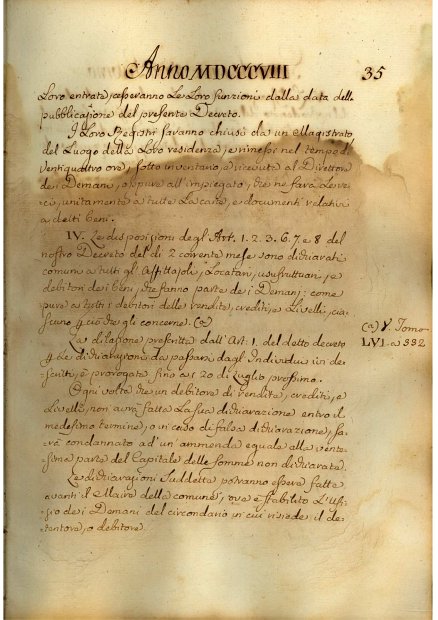 Anno MDCCCVIII 35
Loro entrate, cesseranno Le Loro funzioni dalla data della
pubblicazione del presente Decreto.
I Loro Registri saranno chiusi da un Magistrato
del Luogo della Loro residenza, e rimessi nel tempo di
ventiquattro ore, sotto inventario, e ricevuta al Direttore
dei Demani, o pure all'impiegato, che ne farà Le veci
unitamente a tutte Le carte, e documenti relativi
a detti beni.
IV. Le disposizioni degl' Art. 1. 2. 3. 6. 7. e 8 del
nostro Decreto del dì 2 corrente mese sono dichiarati
comuni a tutti gl' Affittajoli, Locatari, usufruttuari, e
debitori dei beni, che fanno parte dei Demani; come
pure a tutti i debitori delle rendite, crediti, e Livelli, cia-
scuno p ciò che gli concerne. (a)
(a) V. Tomo
LVI. a 332
La dilazione prescritta dall' Art. 1. del detto decreto
p Le dichiarazioni da passarsi dagl' Individui in de-
scritti, è prorogata fino a' 20 di Luglio prossimo.
Ogni volta che un debitore di rendite, crediti, e
Livelli, non avrà fatta La sua dichiarazione entro il
medesimo termine, o in caso di falsa dichiarazione, sa-
rà condannato ad un' ammenda eguale alla vente-
sima parte del Capitale delle somme non dichiarate.
Le dichiarazioni suddette potranno essere fatte
avanti il Maire della comune, ove è stabilito L'Ufi-
zio dei Demani del circondario in cui risiede il de-
tentore, o debitore.